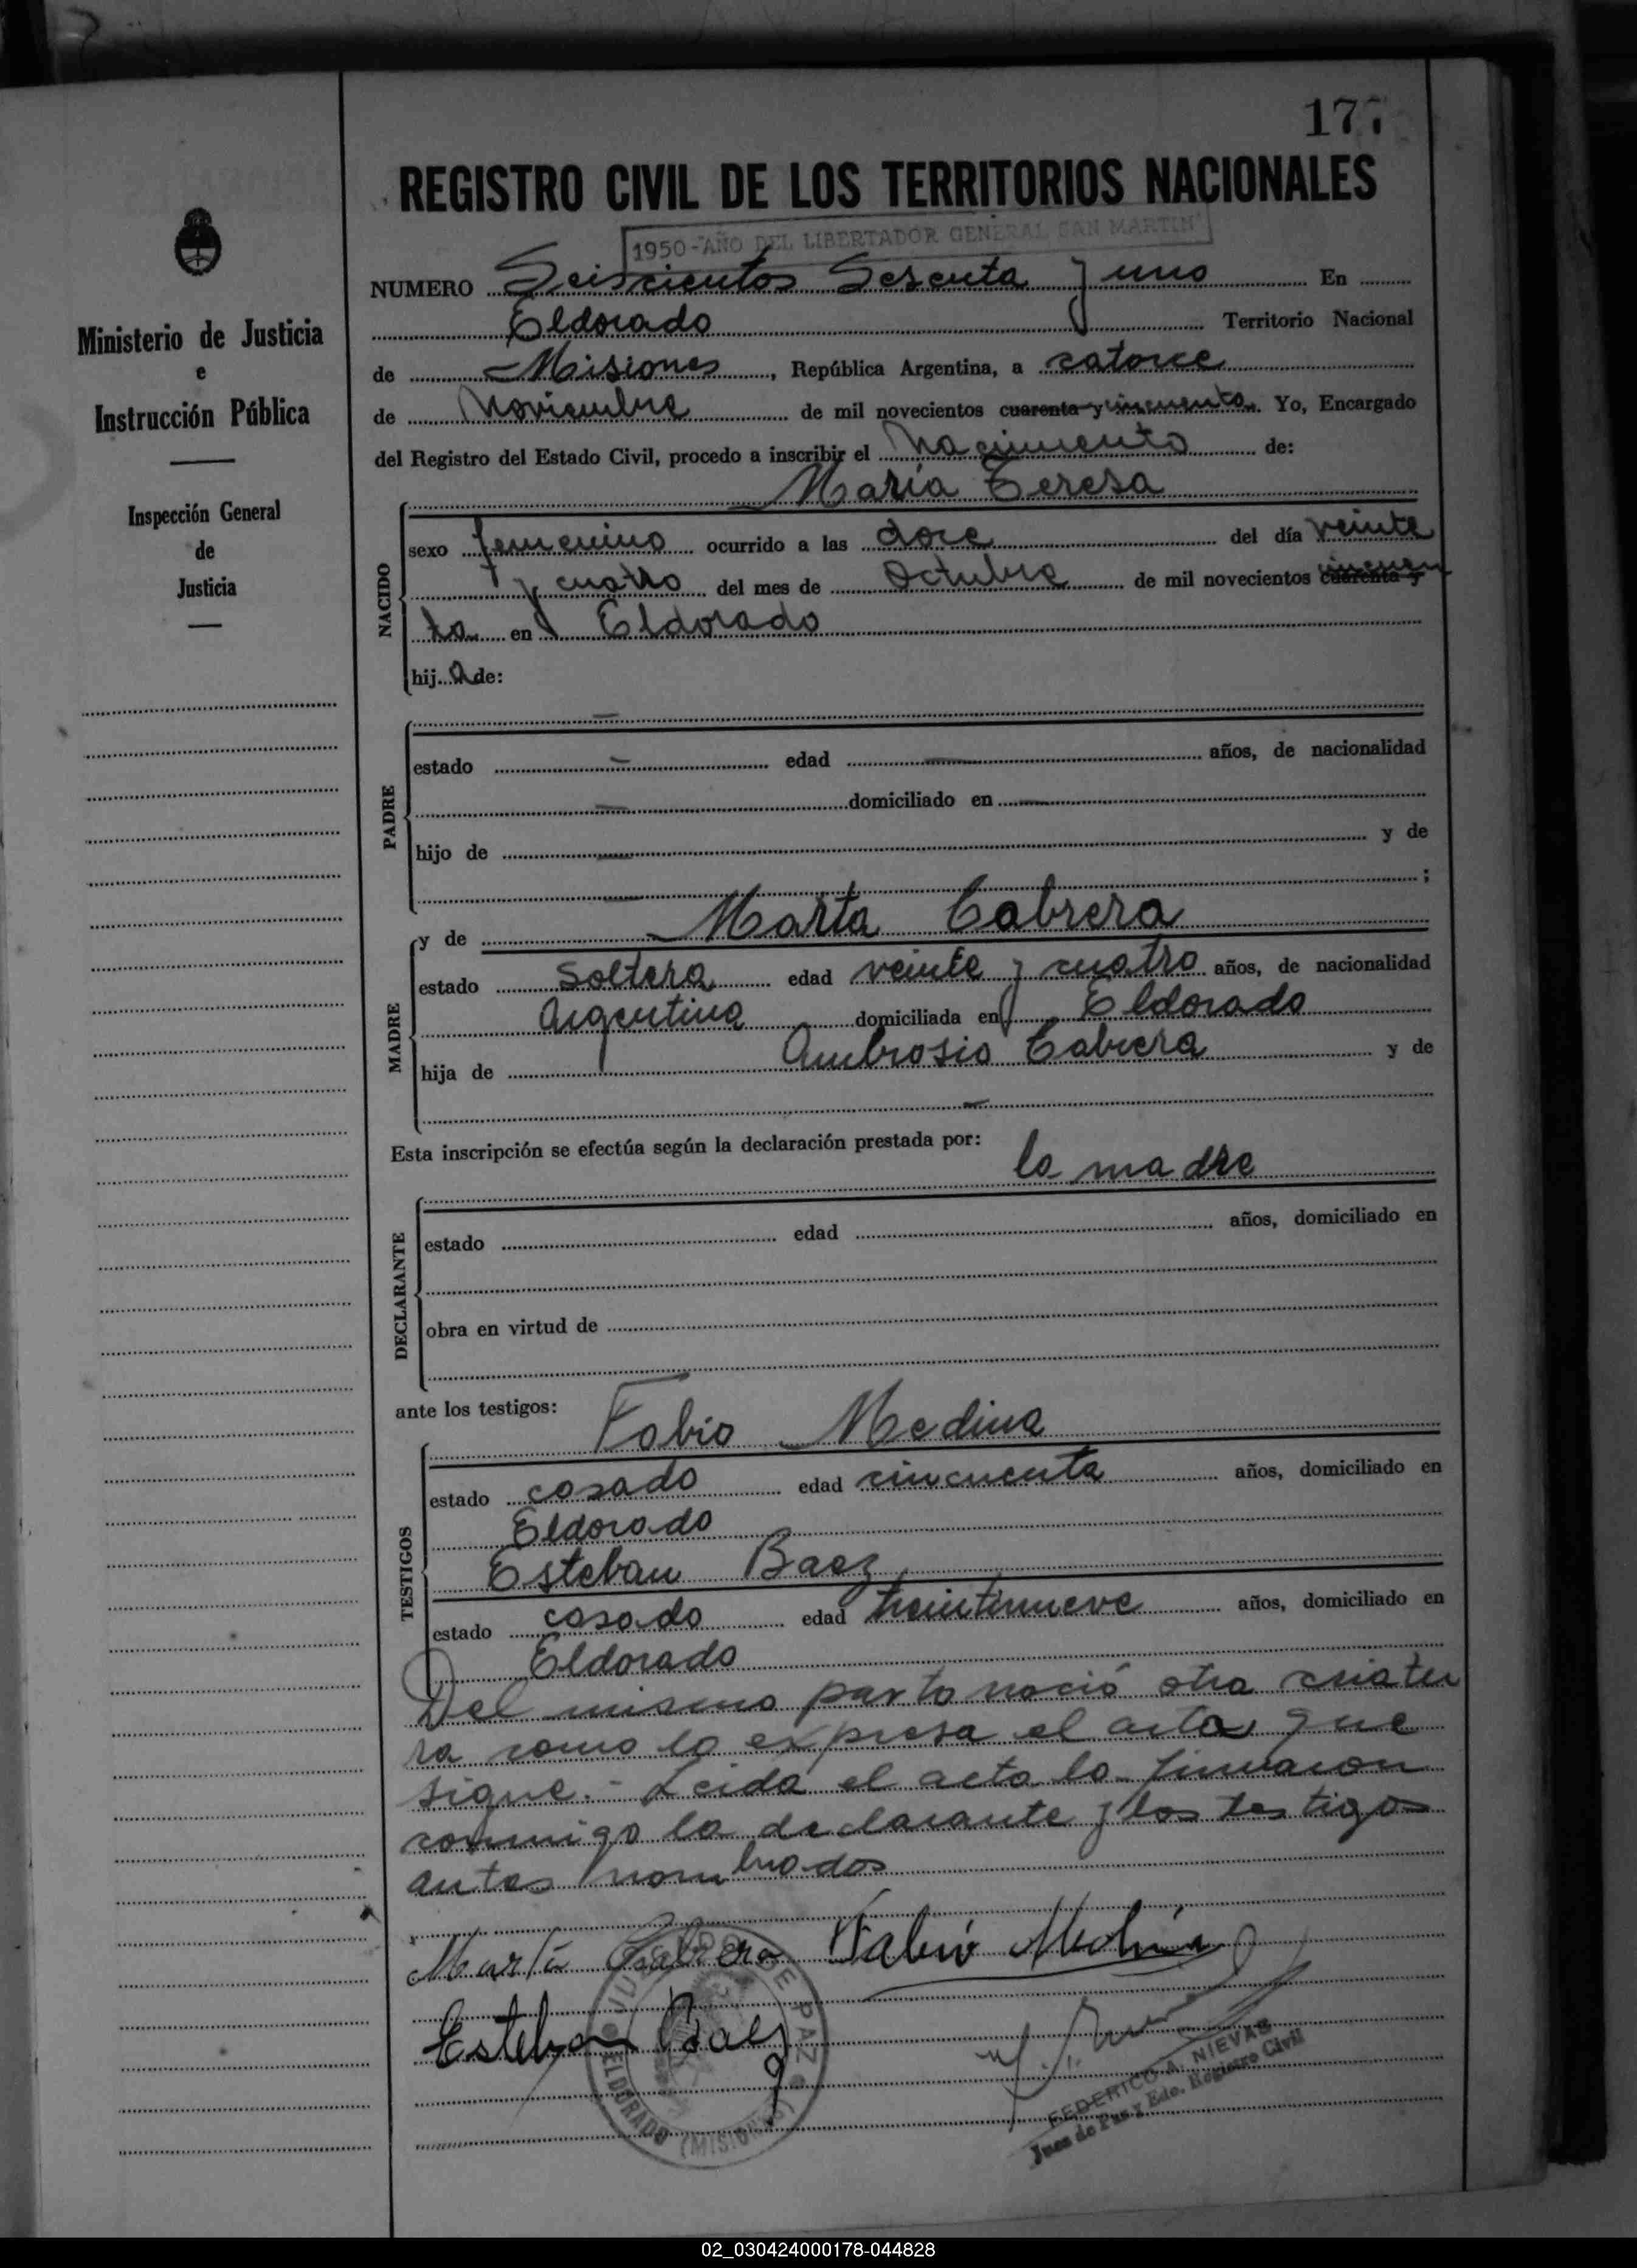 177
REGISTRO CIVIL DE LOS TERRITORIOS NACIONALES
1950-"AÑO DEL LIBERTADOR GENERAL SAN MARTIN"
Ministerio de Justicia
e
Instrucción Pública
Inspección General
de
Justicia
NUMERO Seiscientos Sesenta y uno En
Eldorado Territorio Nacional
de Misiones, República Argentina, a catorce
de Noviembre de mil novecientos cuarenta y cincuenta. Yo, Encargado
del Registro del Estado Civil, procedo a inscribir el nacimiento de:
María Teresa
NACIDO
sexo femenino ocurrido a las doce del día veinte
y cuatro del mes de Octubre de mil novecientos cuarenta y cincuen
ta en Eldorado
hija de:
PADRE
estado — edad — años, de nacionalidad
— domiciliado en —
hijo de — y de
— ;
y de Marta Cabrera
MADRE
estado Soltera edad veinte y cuatro años, de nacionalidad
Argentina domiciliada en Eldorado
hija de Ambrosio Cabrera y de
—
Esta inscripción se efectúa según la declaración prestada por:
la madre
DECLARANTE
estado edad años, domiciliado en
obra en virtud de
ante los testigos:
Fabio Medina
TESTIGOS
estado casado edad cincuenta años, domiciliado en
Eldorado
Esteban Baez
estado casado edad treintinueve años, domiciliado en
Eldorado
Del mismo parto nació otra criatu
ra como lo expresa el acta que
sigue.- Leida el acta la firmaron
conmigo la declarante y los testigos
antes nombrados
Marta Cabrera Fabio Medina
Esteban Baez
JUZGADO DE PAZ
ELDORADO (MISIONES)
FEDERICO A. NIEVAS
Juez de Paz y Edo. Registro Civil
02_030424000178-044828